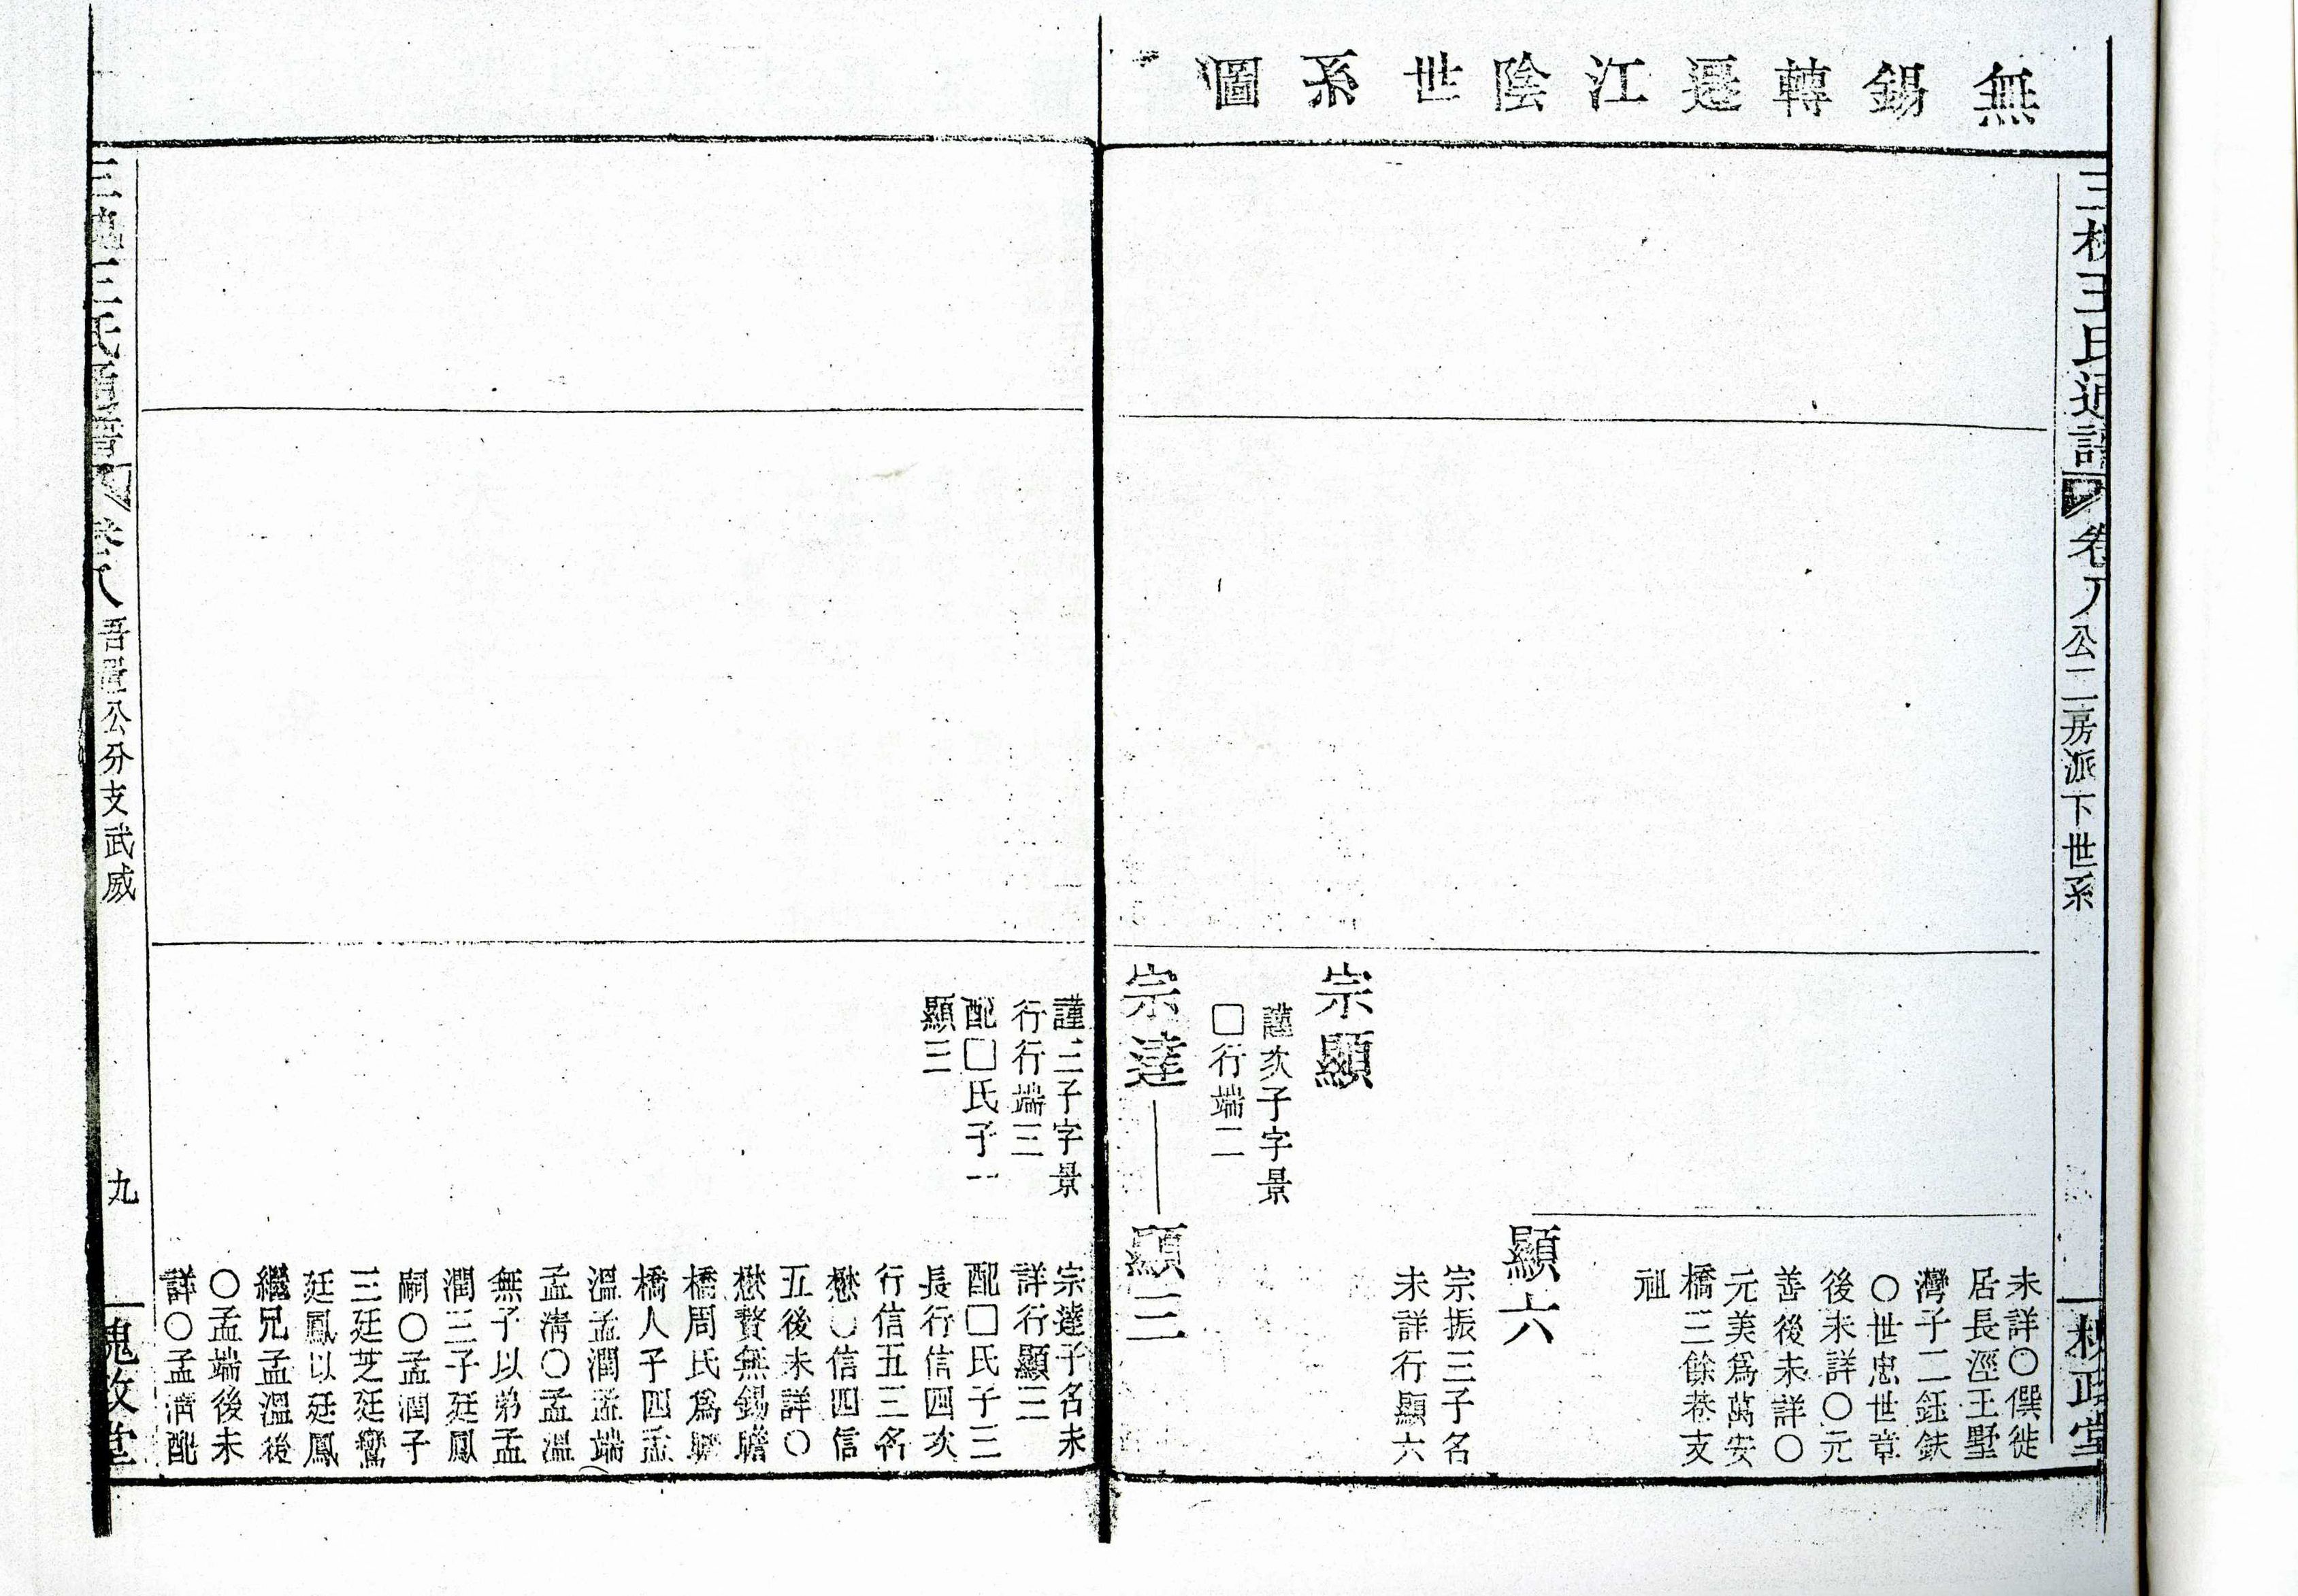 無錫轉遷江陰世系圖
三槐王氏通譜
卷八
公二房派下世系
槐政堂
未詳〇僎徙
居長涇王墅
灣子二鈺鈇
〇世忠世章
後未詳〇元
善後未詳〇
元美爲萬安
橋三餘巷支
祖
顯六
宗振三子名
未詳行顯六
宗顯
謹次子字景
□行端二
宗達
顯三
謹三子字景
行行端三
配□氏子一
顯三
宗達子名未
詳行顯三
配□氏子三
長行信四次
行信五三名
懋〇信四信
五後未詳〇
懋贅無錫瞻
橋周氏爲瞻
橋人子四孟
溫孟潤孟端
孟濟〇孟溫
無子以弟孟
潤三子廷鳳
嗣〇孟潤子
三廷芝廷鸞
廷鳳以廷鳳
繼兄孟溫後
〇孟端後未
詳〇孟濟配
三槐王氏通譜
卷八
吾
公分支武威
九
槐政堂